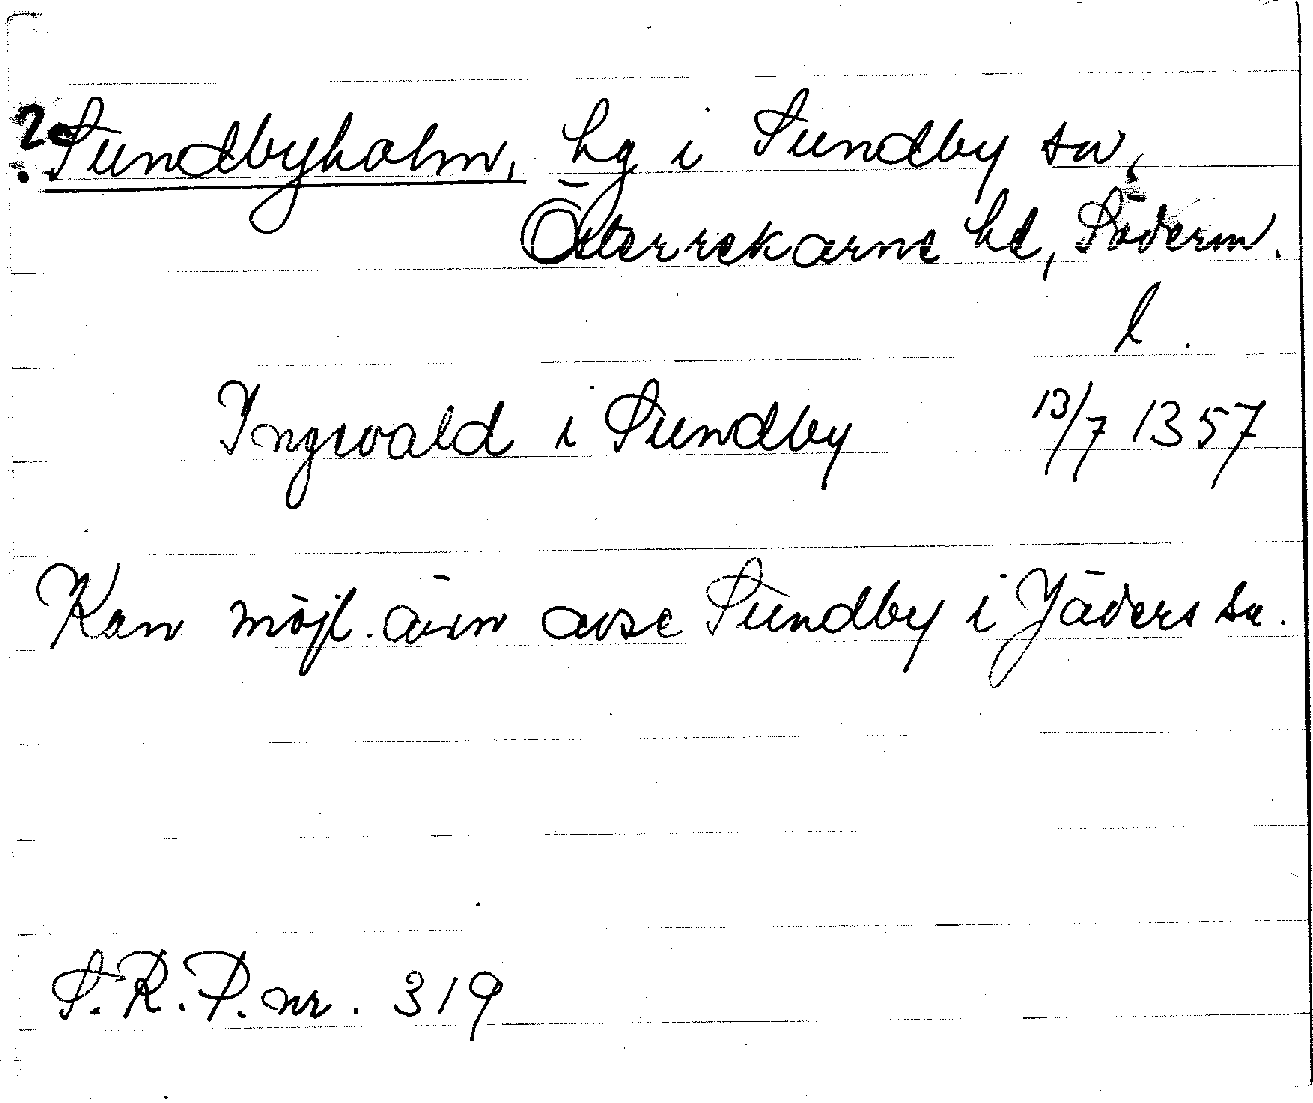 ? Sundbyholm, hg i Sundby sn,
Österrekarne hd, Söderm.
l.
Ingevald i Sundby 13/7 1357
Kan möjl. även avse Sundby i Jäders sn.
S.R.P. nr. 319